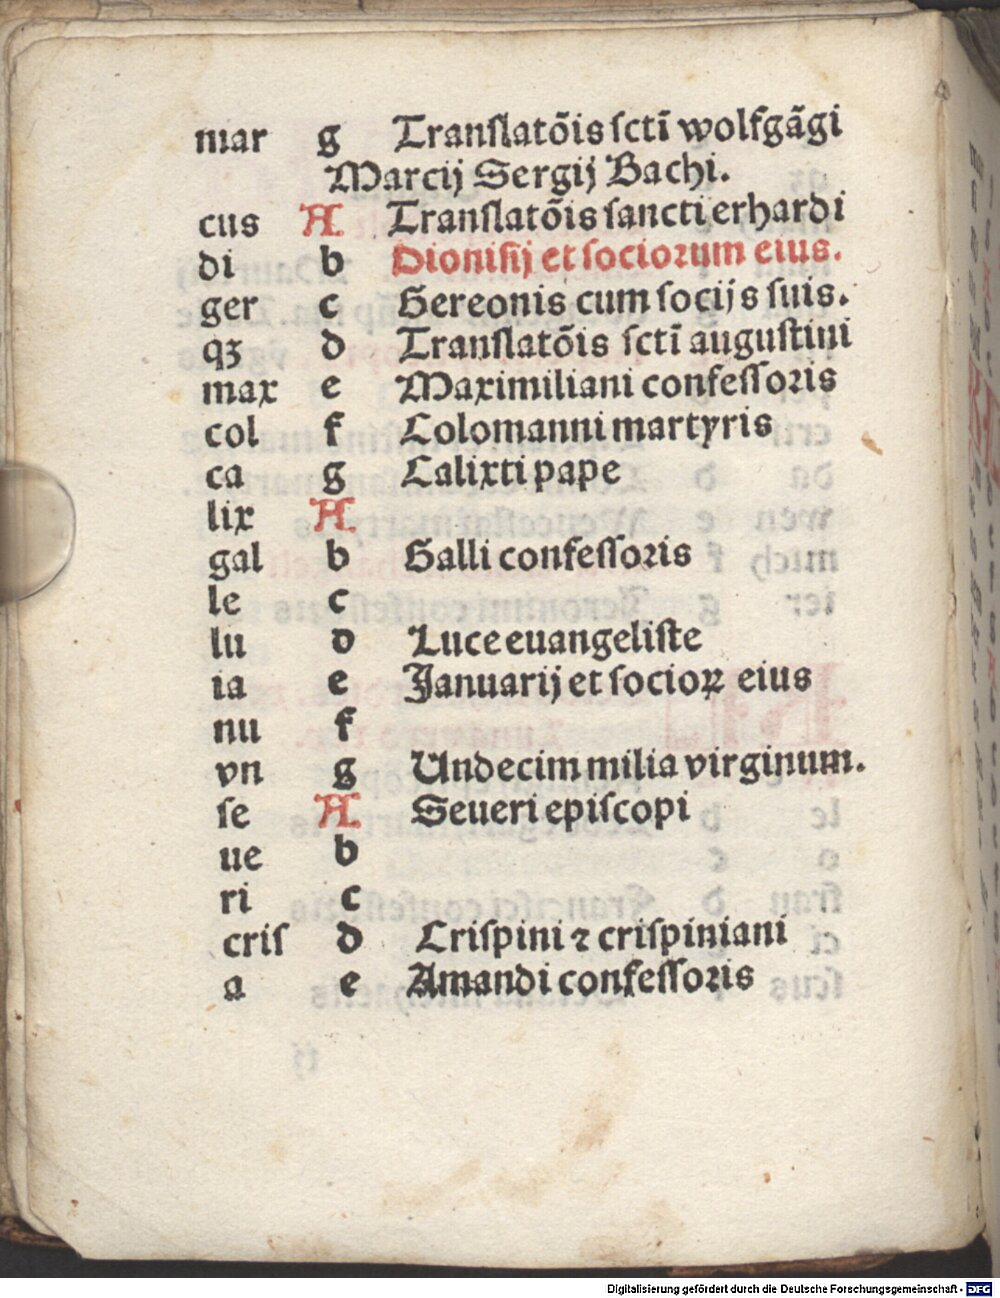 mar g Tranſlatõis ſctī wolfgãgi
Marcij Sergij Bachi.
cus A Tranſlatõis ſancti erhardi
di b Dioniſij et ſociorum eius.
ger c Gereonis cum ſocijs ſuis.
qꝫ d Tranſlatõis ſctī auguſtini
max e Maximiliani confeſſoris
col f Colomanni martyris
ca g Calixti pape
lix A
gal b Galli confeſſoris
le c
lu d Luce euangeliſte
ia e Januarij et socioꝝ eius
nu f
vn g Undecim milia virginum.
ſe A Seueri epiſcopi
ue b
ri c
criſ d Criſpini ⁊ criſpiniani
a e Amandi confeſſoris
Digitalisierung gefördert durch die Deutsche Forschungsgemeinschaft - DFG